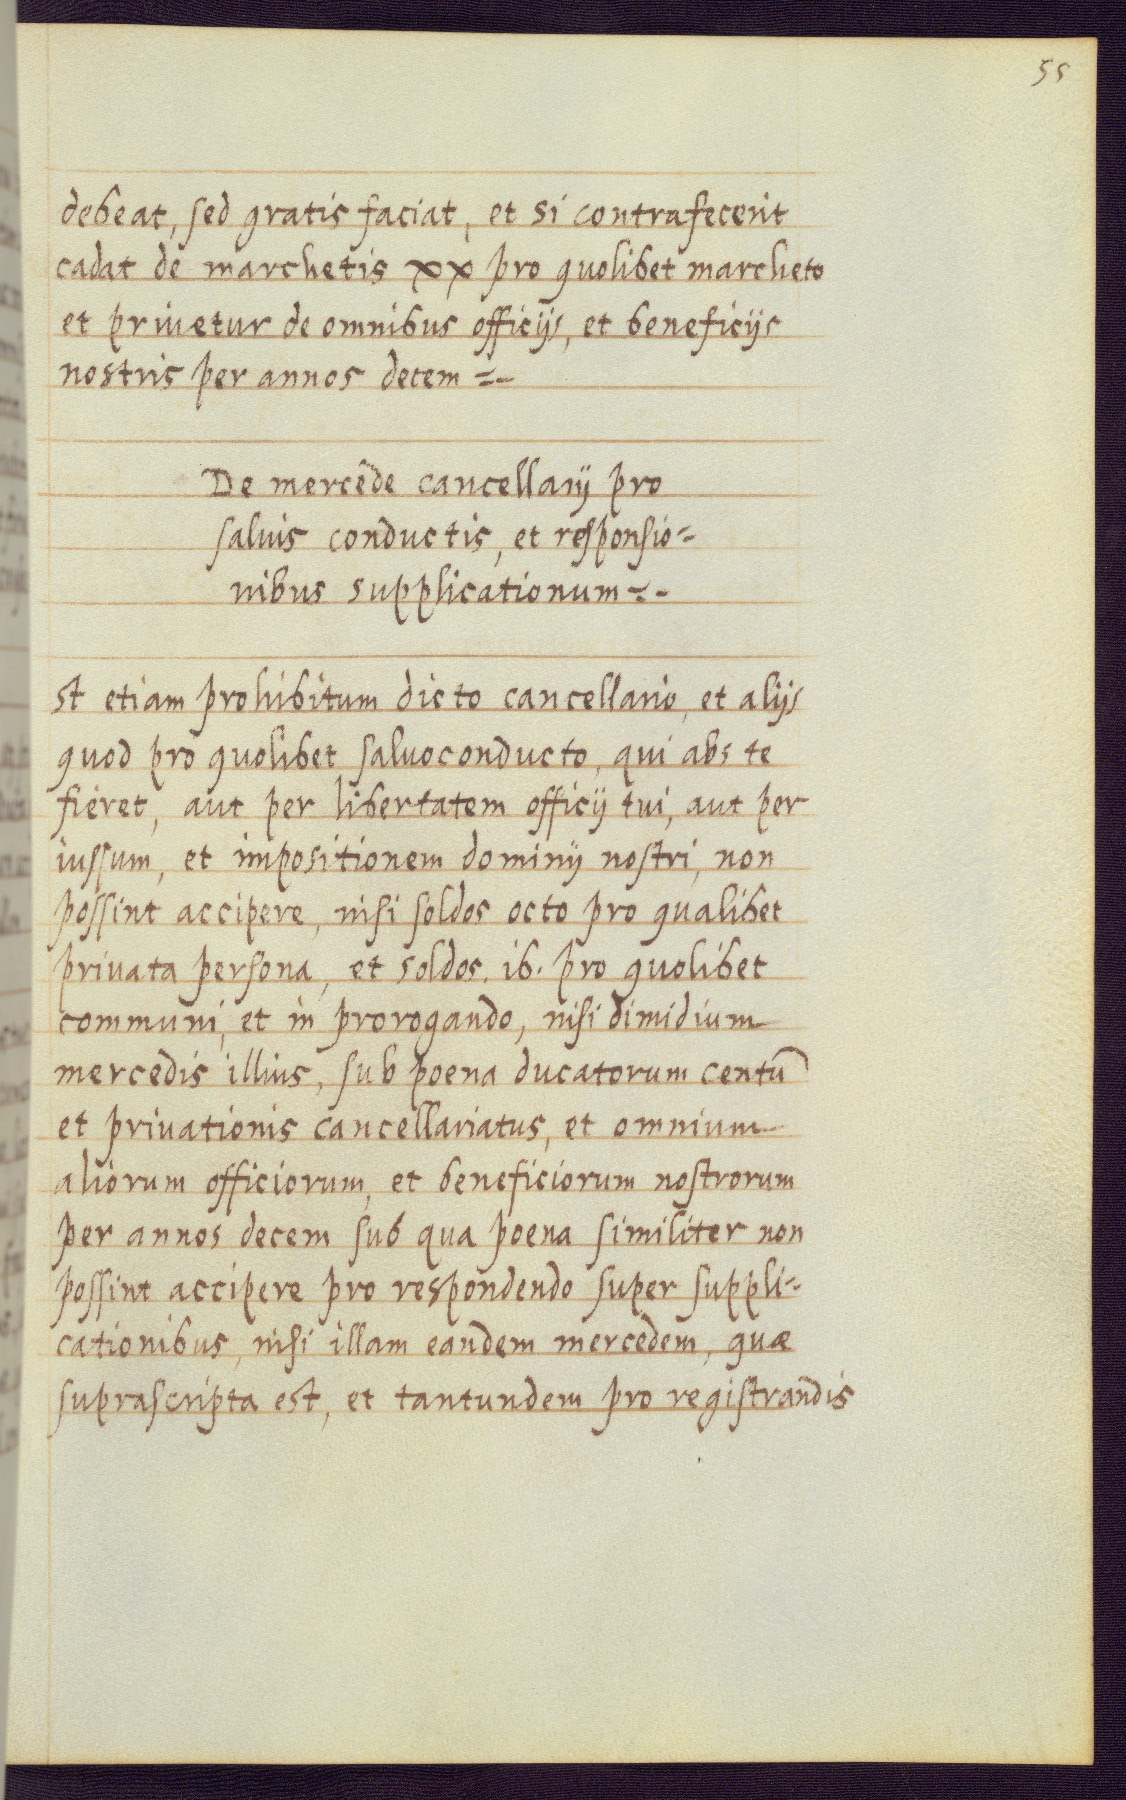 55
debeat, sed gratis faciat, et si contrafecerit
cadat de marchetis xx pro quolibet marcheto
et privetur de omnibus officijs, et beneficijs
nostris per annos decem =-
De mercede cancellarij pro
salvis conductis, et responsio=
nibus supplicationum =-
st etiam prohibitum dicto cancellario, et alijs
quod pro quolibet salvoconducto, qui abs te
fieret, aut per libertatem officij tui, aut per
iussum, et impositionem dominij nostri, non
possint accipere, nisi soldos octo pro qualibet
privata persona, et soldos. 16. pro quolibet
communi, et in prorogando, nisi dimidium
mercedis illius, sub poena ducatorum centũ
et privationis cancellariatus, et omnium
aliorum officiorum, et beneficiorum nostrorum
per annos decem sub qua poena similiter non
possint accipere pro respondendo super suppli=
cationibus, nisi illam eandem mercedem, quæ
suprascripta est, et tantundem pro registrandis